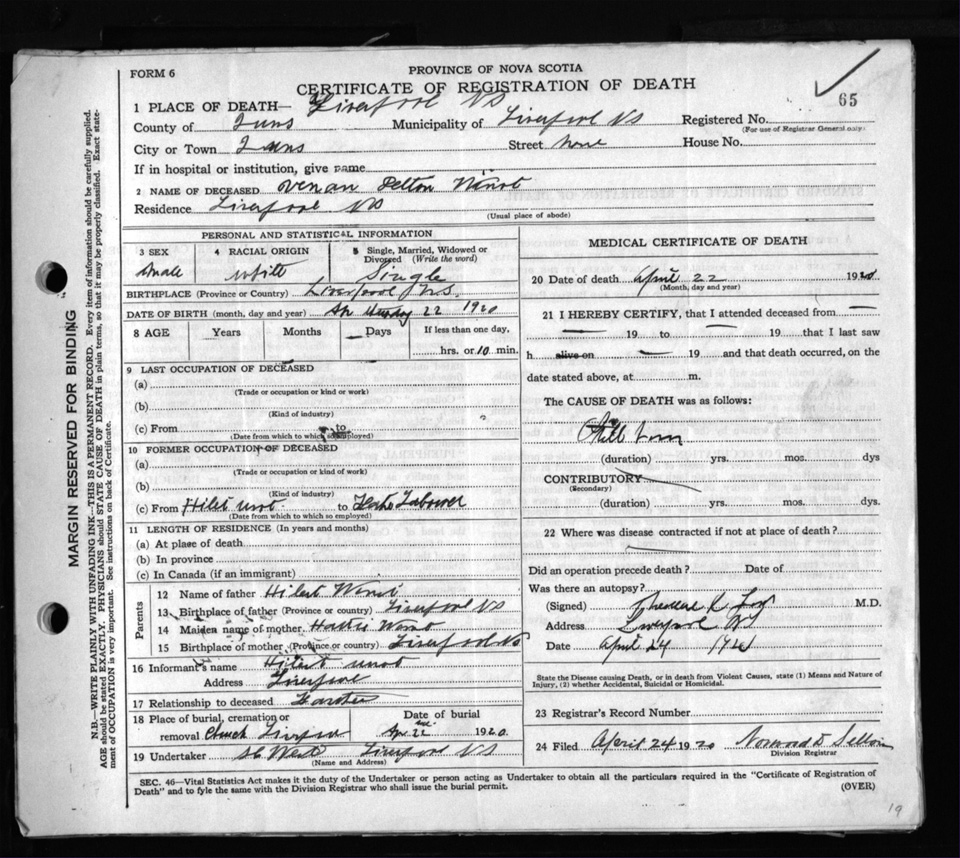 FORM 6
PROVINCE OF NOVA SCOTIA
CERTIFICATE OF REGISTRATION OF DEATH
65
1 PLACE OF DEATH— Liverpool NS
County of Municipality of Liverpool NS Registered No.
(For use of Registrar General only)
City or Town Street House No.
If in hospital or institution, give name
2 NAME OF DECEASED
Residence Liverpool NS
(Usual place of abode)
PERSONAL AND STATISTICAL INFORMATION
3 SEX 4 RACIAL ORIGIN 5 Single, Married, Widowed or Divorced (Write the word)
Single
BIRTHPLACE (Province or Country) Liverpool N.S.
DATE OF BIRTH (month, day and year) 22 1920
8 AGE Years Months Days If less than one day,
hrs. or 10 min.
9 LAST OCCUPATION OF DECEASED
(a)
(Trade or occupation or kind or work)
(b)
(Kind of industry)
(c) From to
(Date from which to which so employed)
10 FORMER OCCUPATION OF DECEASED
(a)
(Trade or occupation or kind of work)
(b)
(Kind of industry)
(c) From to Labourer
(Date from which to which so employed)
11 LENGTH OF RESIDENCE (In years and months)
(a) At place of death
(b) In province
(c) In Canada (if an immigrant)
Parents
12 Name of father
13 Birthplace of father (Province or country) Liverpool NS
14 Maiden name of mother
15 Birthplace of mother (Province or country) Liverpool NS
16 Informant's name
Address Liverpool
17 Relationship to deceased
18 Place of burial, cremation or removal Church Liverpool
Date of burial
22 1920.
19 Undertaker West Liverpool NS
(Name and Address)
MEDICAL CERTIFICATE OF DEATH
20 Date of death April 22 1920
(Month, day and year)
21 I HEREBY CERTIFY, that I attended deceased from
19 to 19 that I last saw
h alive on 19 and that death occurred, on the
date stated above, at m.
The CAUSE OF DEATH was as follows:
Still born
(duration) yrs. mos. dys
CONTRIBUTORY
(Secondary)
(duration) yrs. mos. dys.
22 Where was disease contracted if not at place of death?
Did an operation precede death? Date of
Was there an autopsy?
(Signed) M.D.
Address Liverpool
Date April 24
State the Disease causing Death, or in death from Violent Causes, state (1) Means and Nature of
Injury, (2) whether Accidental, Suicidal or Homicidal.
23 Registrar's Record Number
24 Filed April 24 1920
Division Registrar
SEC. 46—Vital Statistics Act makes it the duty of the Undertaker or person acting as Undertaker to obtain all the particulars required in the "Certificate of Registration of
Death" and to fyle the same with the Division Registrar who shall issue the burial permit.
(OVER)
19
MARGIN RESERVED FOR BINDING
N.B.—WRITE PLAINLY WITH UNFADING INK—THIS IS A PERMANENT RECORD. Every item of information should be carefully supplied.
AGE should be stated EXACTLY. PHYSICIANS should STATE CAUSE OF DEATH in plain terms, so that it may be properly classified. Exact state-
ment of OCCUPATION is very important. See instructions on back of Certificate.